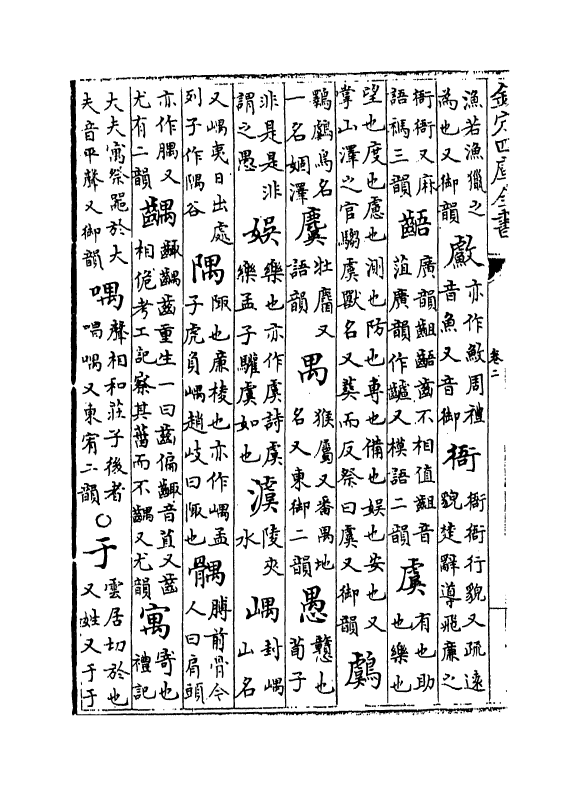 欽定四庫全書
卷二
漁若漁獵之為也又御韻 亦作䱷周禮音魚又音御 衙 衙衙行貌又疏遠貌楚辭導飛廉之
衙衙又麻語禡三韻 齬 廣韻齟齬齒不相值齟音葅廣韻作又模語二韻 虞 有也助也樂也
望也度也慮也測也防也專也備也娛也安也又掌山澤之官騶虞獸名又葬而反祭曰虞又御韻 鸆
鸆鳥名一名婟澤 麌 牡麕又語韻 禺 猴屬又番禺地名又東御二韻 愚 戇也荀子
非是是非謂之愚 娛 樂也亦作虞詩虞樂孟子驩虞如也 澞 陵夾水 嵎 封嵎山名
又嵎夷日出處列子作隅谷 隅 陬也廉棱也亦作嵎孟子虎負嵎趙岐曰陬也 髃 髆前骨今人曰肩頭
亦作腢又尤有二韻 齵 齱齵齒重生一曰齒偏齱音又齒相佹考工記察其菑而不齵又尤韻 寓 寄也禮記
大夫寓祭器於大夫音平聲又御韻 喁 聲相和莊子後者唱喁又東宥二韻 ○于 雲居切於也又姓又于于